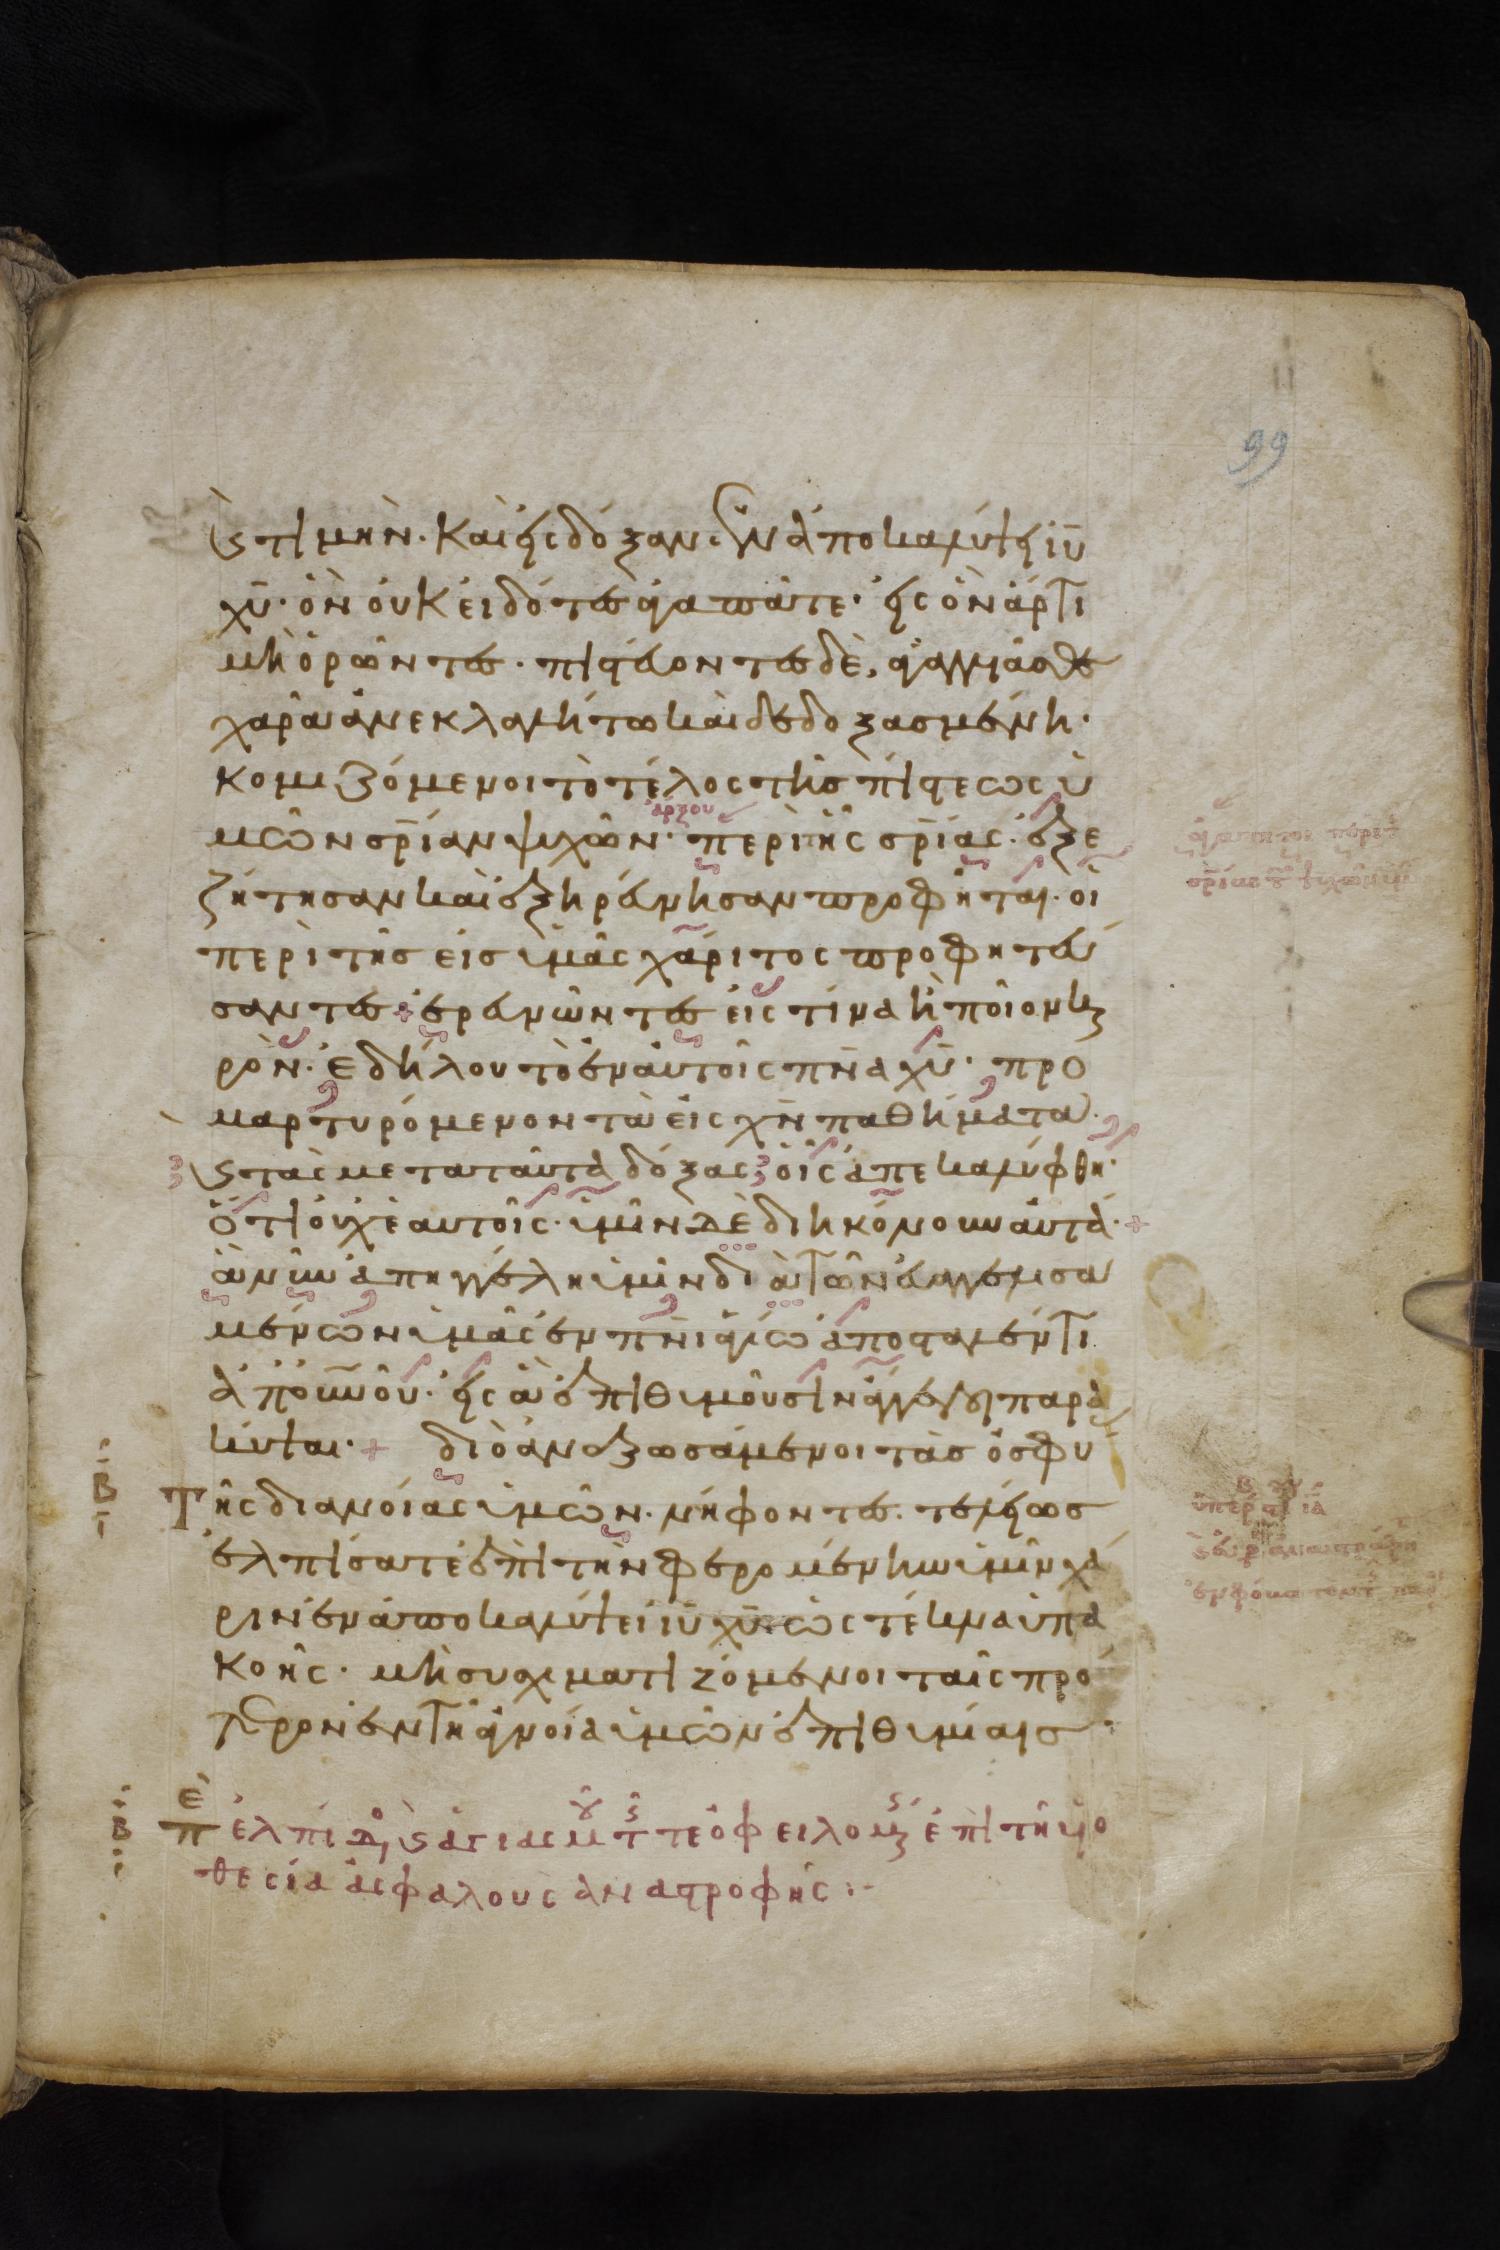 99
ϛ τιμὴν· καὶ εἰς δόξαν· ἐν ἀποκαλύψει ιῡ
χῡ· ὃν οὐκ εἰδότες ἀγαπᾶτε· εἰς ὃν ἄρτι
μὴ ὁρῶντες· πιστεύοντες δὲ, ἀγαλλιᾶσθε
χαρᾶ ἀνεκλαλήτω καὶ δεδοξασμένη·
κομιζόμενοι τὸ τέλος τῆς πίστεως ὑ
μῶν σρ̄ίαν ψυχῶν· περὶ ἧς σρ̄ίας· ἐξε
ζήτησαν καὶ ἐξηρεύνησαν προφῆται· οἱ
περὶ τῆς εἰς ὑμᾶς χάριτος προφητεύ
σαντες + ἐρευνῶντες εἰς τίνα ἢ ποῖον και
ρὸν· ἐδήλου τὸ ἐν αὐτοῖς πν̄α χῡ· προ
μαρτυρόμενον τὰ εἰς χν̄ παθήματα·
ϛ τὰς μετα ταῦτα δόξας· οἷς ἀπεκαλύφθη·
ὅτι οὐχ ἑαυτοῖς· ὑμῖν δὲ διηκόνουν αὐτά· +
ἃ νῦν ἀπηγγέλη ὑμῖν διὰ τῶν εὐαγγελισα
μένων ὑμᾶς ἐν πν̄ι ἁγίω ἀποσταλέντι
ἀπ οὐνοῦ· εἰς ἃ ἐπιθυμοῦσιν ἄγγελοι παρα
κύψαι· + διὸ ἀναζωσάμενοι τὰς ὀσφύ
τῆς διανοίας ὑμῶν· νήφοντες· τελείως
ἐλπίσατε ἐπὶ τὴν φερομένην ὑμῖν χά
ριν ἐν ἀποκαλύψει ιῡ χῡ· ὡς τέκνα ὑπα
κοῆς· μὴ συσχηματιζόμενοι ταῖς πρό
τερον ἐν τῆ ἀγνοία ὑμῶν ἐπιθυμίαις·
ἐλπίδ ϛ ἁγιασμ τ τε ὀφειλομ ἐπὶ τῆ υἱο
θεσία ἀσφαλοῦς ἀναστροφῆς :-